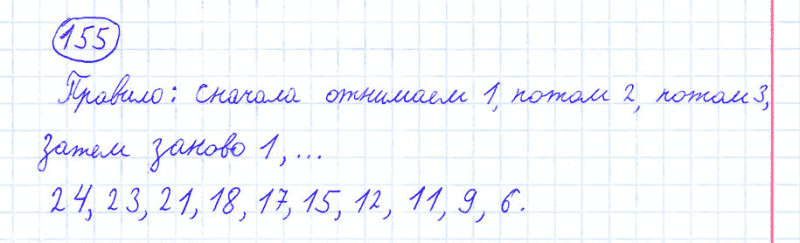 155
Правило: сначала отнимаем 1, потом 2, потом 3,
затем заново 1, ...
24, 23, 21, 18, 17, 15, 12, 11, 9, 6.